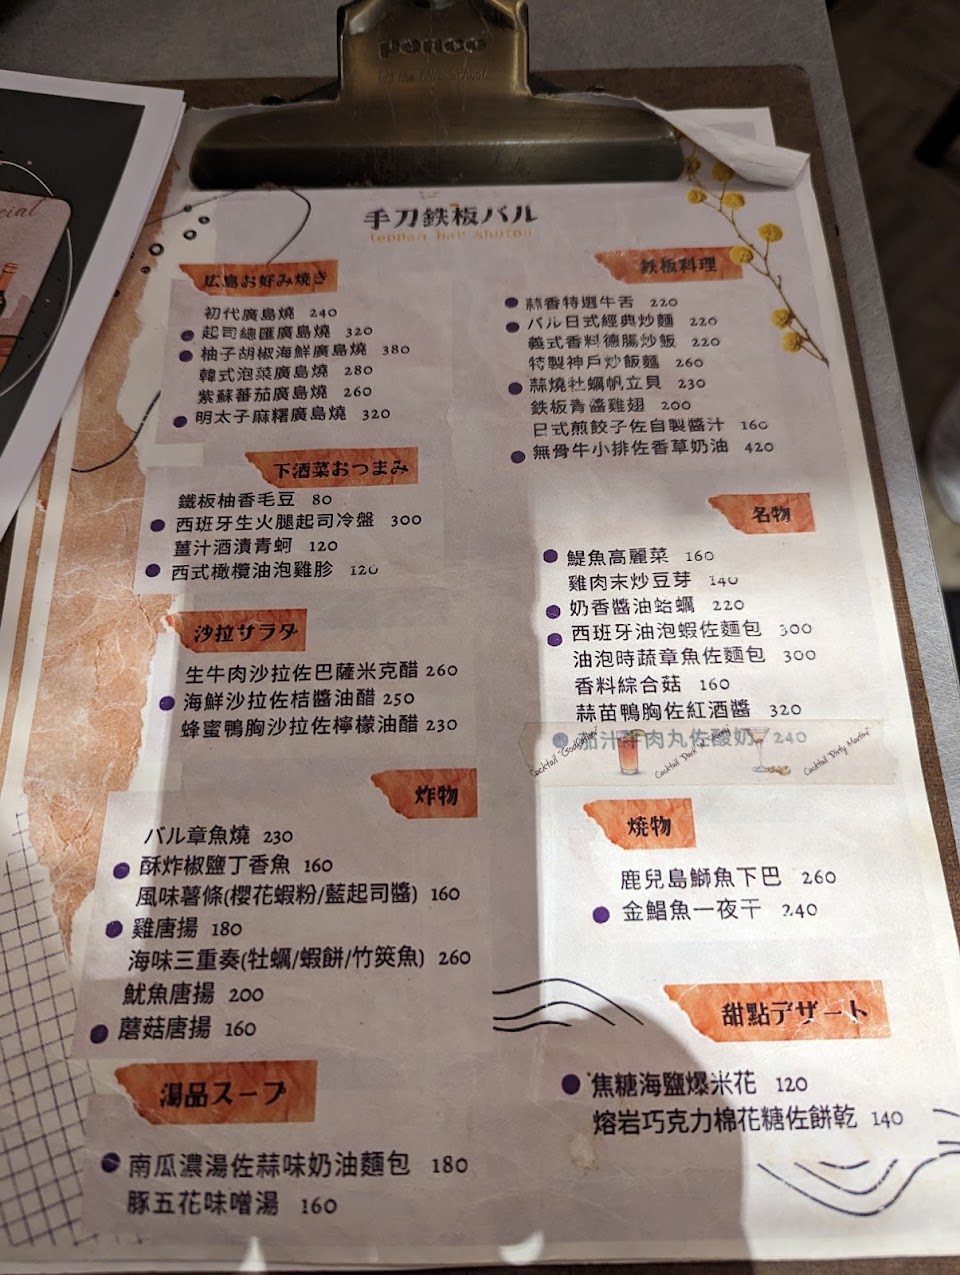 penco
ecial
手刀鉄板バル
teppan bar shutou
広島お好み焼き
初代廣島燒 240
起司總匯廣島燒 320
柚子胡椒海鮮廣島燒 380
韓式泡菜廣島燒 280
紫蘇蕃茄廣島燒 260
明太子麻糬廣島燒 320
下酒菜おつまみ
鐵板柚香毛豆 80
西班牙生火腿起司冷盤 300
薑汁酒漬青蚵 120
西式橄欖油泡雞胗 120
沙拉サラダ
生牛肉沙拉佐巴薩米克醋 260
海鮮沙拉佐桔醬油醋 250
蜂蜜鴨胸沙拉佐檸檬油醋 230
炸物
バル章魚燒 230
酥炸椒鹽丁香魚 160
風味薯條(櫻花蝦粉/藍起司醬) 160
雞唐揚 180
海味三重奏(牡蠣/蝦餅/竹筴魚) 260
魷魚唐揚 200
蘑菇唐揚 160
湯品スープ
南瓜濃湯佐蒜味奶油麵包 180
豚五花味噌湯 160
鉄板料理
蒜香特選牛舌 220
バル日式經典炒麵 220
義式香料德腸炒飯 220
特製神戶炒飯麵 260
蒜燒牡蠣帆立貝 230
鉄板青醬雞翅 200
日式煎餃子佐自製醬汁 160
無骨牛小排佐香草奶油 420
名物
鯷魚高麗菜 160
雞肉末炒豆芽 140
奶香醬油蛤蠣 220
西班牙油泡蝦佐麵包 300
油泡時蔬章魚佐麵包 300
香料綜合菇 160
蒜苗鴨胸佐紅酒醬 320
茄汁牛肉丸佐酸奶 240
Cocktail "Godfather"
Cocktail Dark
Cocktail Dirty Martini"
燒物
鹿兒島鰤魚下巴 260
金鯧魚一夜干 240
甜點デザート
焦糖海鹽爆米花 120
熔岩巧克力棉花糖佐餅乾 140